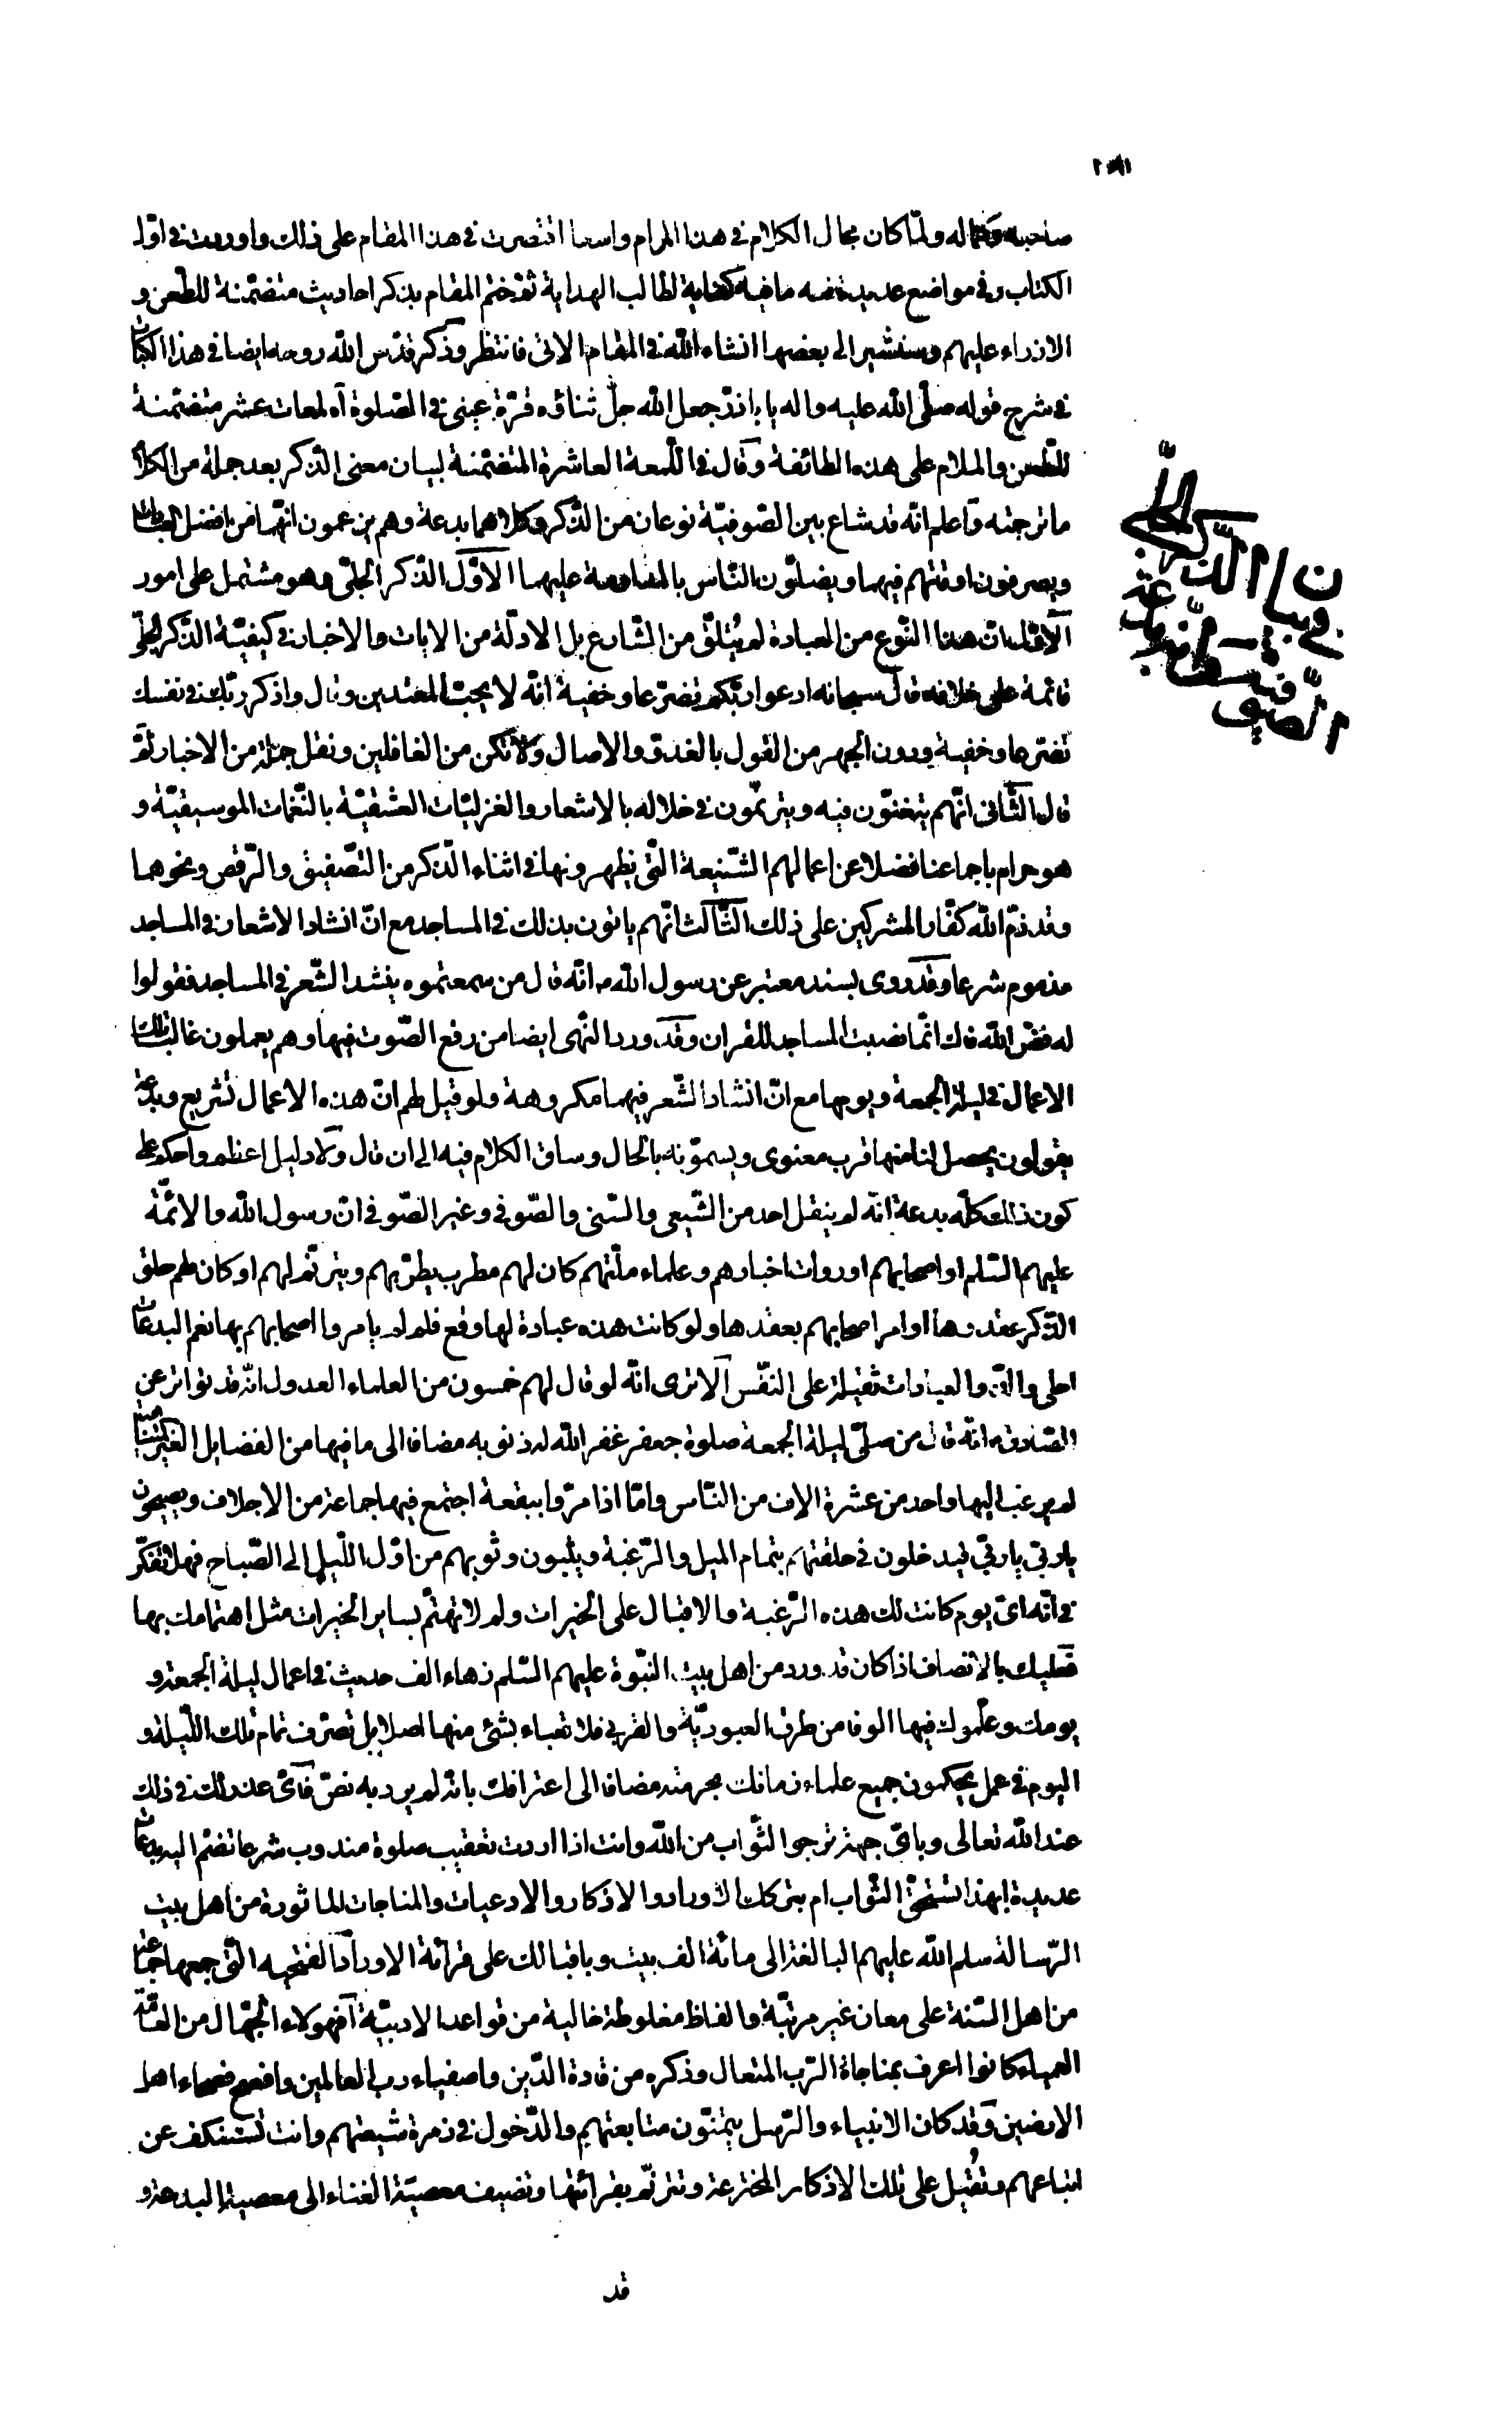 صاحبه وكماله ولمّا كان مجال الكلام في هذا المرام واسعا اقتصرت في هذا المقام على ذلك واوردت في اوّل
الكتاب وفي مواضع عديدة منه ما فيه كفاية لطالب الهداية ثمّ نختم المقام بذكر احاديث متضمّنة للطّعن و
الازراء عليهم وسنشير الى بعضها انشاء الله في المقام الاتى فانتظر وذكر قدّس الله روحه ايضا في هذا الكتاب
في شرح قوله صلّى الله عليه واله يا باذرّ جعل الله جلّ ثناؤه قرّة عينى في الصّلوة آه لمعات عشر متضمّنة
للطّعن والملام على هذه الطائفة وقال في اللّمعة العاشرة المتضمّنة لبيان معنى الذّكر بعد جملة من الكلام
ما ترجمته واعلم انّه قد شاع بين الصّوفيّة نوعان من الذّكر وكلاهما بدعة وهم يزعمون انّهما من افضل العبادات
ويصرفون اوقتهم فيهما ويضلّون النّاس بالمداومة عليهما الاوّل الذّكر الجلّى وهو مشتمل على امور
الاوّل انّ هذا النّوع من العبادة لم يُتلقّ من الشّارع بل الادلّة من الايات والاخبار في كيفيّة الذّكر الجلّى
قائمة على خلافه قال سبحانه ادعوا ربّكم تضرّعا وخفية انّه لا يحبّ المعتدين وقال واذكر ربّك في نفسك
تضرّعا وخفية ودون الجهر من القول بالغدوّ والاصال ولا تكن من الغافلين ونقل جملة من الاخبار ثمّ
قال الثّانى انّهم يتغنّون فيه ويترنّمون في خلاله بالاشعار والغزليّات العشقيّة بالنّغمات الموسيقيّة و
هو حرام باجماعنا فضلا عن اعمالهم الشّنيعة الّتى يظهرونها في اثناء الذّكر من التّصفيق والرّقص ونحوهما
وقد ذمّ الله كفّار المشركين على ذلك الثّالث انّهم ياتون بذلك في المساجد مع انّ انشاد الاشعار في المساجد
مذموم شرعا وقد روى بسند معتبر عن رسول الله ص انّه قال من سمعتموه ينشد الشّعر في المساجد فقولوا
له فضّ الله فاك انّما نصبت المساجد للقران وقد ورد النّهى ايضا من رفع الصّوت فيها وهم يعملون غالبا تلك
الاعمال في ليلة الجمعة ويومها مع انّ انشاد الشّعر فيهما مكروهة ولو قيل لهم انّ هذه الاعمال تشريع وبدعة
يقولون يحصل لنا منها قرب معنوى ويسمّونه بالحال وساق الكلام فيه الى ان قال ولا دليل اعظم واحكم على
كون ذلك كلّه بدعة انّه لم ينقل احد من الشّيعى والسّنى والصّوفى وغير الصّوفى انّ رسول الله والائمّة
عليهم السّلم او اصحابهم او روات اخبارهم وعلماء ملّتهم كان لهم مطرب يطرّبهم ويترنّم لهم او كان لهم حلق
الذّكر عقدوها او امر اصحابهم بعقدها ولو كانت هذه عبادة لها وقع فلم لم يامروا اصحابهم بها نعم البدعات
احلى والذّ والعبادات ثقيلة على النّفس الا ترى انّه لو قال لهم خمسون من العلماء العدول انّه قد تواتر عن
الصّادق ع انّه قال من صلّى ليلة الجمعة صلوة جعفر غفر الله له ذنوبه مضافا الى ما فيها من الفضايل الغير
لم يرغب اليها واحد من عشرة الاف من النّاس وامّا اذا مرّوا ببقعة اجتمع فيها جماعة من الاجلاف ويصيحون
يا ربّى يا ربّى فيدخلون في حلقتهم بتمام الميل والرّغبة ويثبون وثوبهم من اوّل اللّيل الى الصّباح فهلا تفكّر
في انّه اىّ يوم كانت لك هذه الرّغبة والاقبال على الخيرات ولم لا تهتمّ بساير الخيرات مثل اهتمامك بها
فعليك بالانصاف اذا كان قد ورد من اهل بيت النبّوة عليهم السّلم زهاء الف حديث في اعمال ليلة الجمعة و
يومك وعلّموك فيها الوفا من طرق العبوديّة والقرب فلا تعباء بشئ منها اصلا بل تصرف تمام تلك اللّيلة و
اليوم في عمل يحكمون جميع علماء زمانك بحرمته مضافا الى اعترافك بانّه لم يرد به نصّ فاىّ عذر لك في ذلك
عند الله تعالى وباىّ جهة ترجوا الثّواب من الله وانت اذا اردت تعقيب صلوة مندوب شرعا تضمّ اليه بدعات
عديدة ابهذا تستحقّ الثّواب ام بتركك الاوراد والاذكار والادعيات والمناجات الماثورة من اهل بيت
الرّسالة سلم الله عليهم البالغة الى مائة الف بيت وباقبالك على قرائة الاوراد الفتحيه الّتى جمعها جماعة
من اهل السّنة على معان غير مرتبّة والفاظ مغلوطة خالية من قواعد الادبيّة افهولاء الجهّال من العامّة
العمياء كانوا اعرف بمناجاة الرّب المتعال وذكره من قادة الدّين واصفياء ربّ العالمين وافصح فصحاء اهل
الارضين وقد كان الانبياء والرّسل يتمنّون متابعتهم والدّخول في زمرة شيعتهم وانت تستنكف عن
اتباعهم وتُقبل على تلك الاذكار المخترعة وتترنّم بقرائتها وتضيف معصية الغناء الى معصية البدعة و
قد
في بيان الذّكر الجلّى
الصّوفيّة